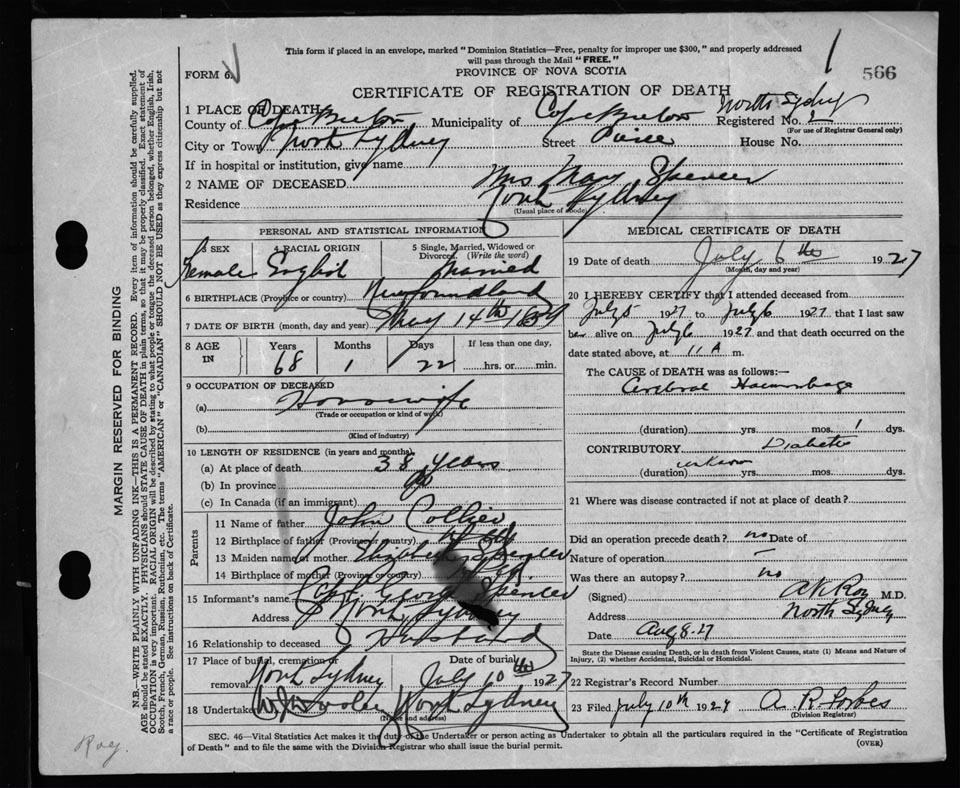 This form if placed in an envelope, marked "Dominion Statistics—Free, penalty for improper use $300," and properly addressed
will pass through the Mail "FREE."
566
FORM 6.
PROVINCE OF NOVA SCOTIA
CERTIFICATE OF REGISTRATION OF DEATH
1 PLACE OF DEATH
North Sydney
County of Cape Breton Municipality of Cape Breton Registered No.
(For use of Registrar General only)
City or Town North Sydney Street House No.
If in hospital or institution, give name
2 NAME OF DECEASED Mrs Mary Spencer
Residence North Sydney
(Usual place of abode)
PERSONAL AND STATISTICAL INFORMATION
3 SEX 4 RACIAL ORIGIN 5 Single, Married, Widowed or Divorced. (Write the word)
Female English Married
6 BIRTHPLACE (Province or country) Newfoundland
7 DATE OF BIRTH (month, day and year) May 14th 1859
8 AGE IN Years Months Days If less than one day,
68 1 22 hrs. or min.
9 OCCUPATION OF DECEASED
(a) Housewife
(Trade or occupation or kind of work)
(b)
(Kind of industry)
10 LENGTH OF RESIDENCE (in years and months)
(a) At place of death 38 years
(b) In province
(c) In Canada (if an immigrant)
Parents
11 Name of father John Collier
12 Birthplace of father (Province or country)
13 Maiden name of mother Elizabeth Spencer
14 Birthplace of mother (Province or country)
15 Informant's name Capt. George Spencer
Address North Sydney
16 Relationship to deceased Husband
17 Place of burial, cremation or removal Date of burial
North Sydney July 10th 1927
18 Undertaker North Sydney
(Name and address)
MEDICAL CERTIFICATE OF DEATH
19 Date of death July 6th 1927
(Month, day and year)
20 I HEREBY CERTIFY that I attended deceased from
July 5 1927 to July 6 1927 that I last saw
her alive on July 6 1927 and that death occurred on the
date stated above, at 11 A m.
The CAUSE of DEATH was as follows:—
Cerebral Haemorrhage
(duration) yrs. mos. 1 dys.
CONTRIBUTORY Diabetes
(duration) unknown yrs. mos. dys.
21 Where was disease contracted if not at place of death?
Did an operation precede death? no Date of
Nature of operation —
Was there an autopsy? no
(Signed) M.D.
Address North Sydney
Date Aug 8-27
State the Disease causing Death, or in death from Violent Causes, state (1) Means and Nature of
Injury, (2) whether Accidental, Suicidal or Homicidal.
22 Registrar's Record Number
23 Filed July 10th 1927 A. R. Forbes
(Division Registrar)
SEC. 46—Vital Statistics Act makes it the duty of the Undertaker or person acting as Undertaker to obtain all the particulars required in the "Certificate of Registration
of Death" and to file the same with the Division Registrar who shall issue the burial permit.
(OVER)
MARGIN RESERVED FOR BINDING
N.B.—WRITE PLAINLY WITH UNFADING INK—THIS IS A PERMANENT RECORD. Every item of information should be carefully supplied.
AGE should be stated EXACTLY. PHYSICIANS should STATE CAUSE OF DEATH in plain terms, so that it may be properly classified. Exact statement of
OCCUPATION is very important. RACIAL ORIGIN will be described by stating to what people or tongue the deceased person belonged, whether English, Irish,
Scotch, French, German, Russian, Ruthenian, etc. The terms "AMERICAN" or "CANADIAN" SHOULD NOT BE USED as they express citizenship but not
a race or people. See instructions on back of Certificate.
Roy.